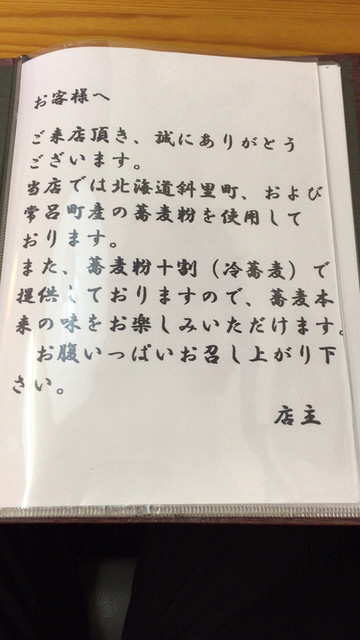 お客様へ
ご来店頂き、誠にありがとう
ございます。
当店では北海道斜里町、および
常呂町産の蕎麦粉を使用して
おります。
また、蕎麦粉十割（冷蕎麦）で
提供しておりますので、蕎麦本
来の味をお楽しみいただけます。
お腹いっぱいお召し上がり下
さい。
店主